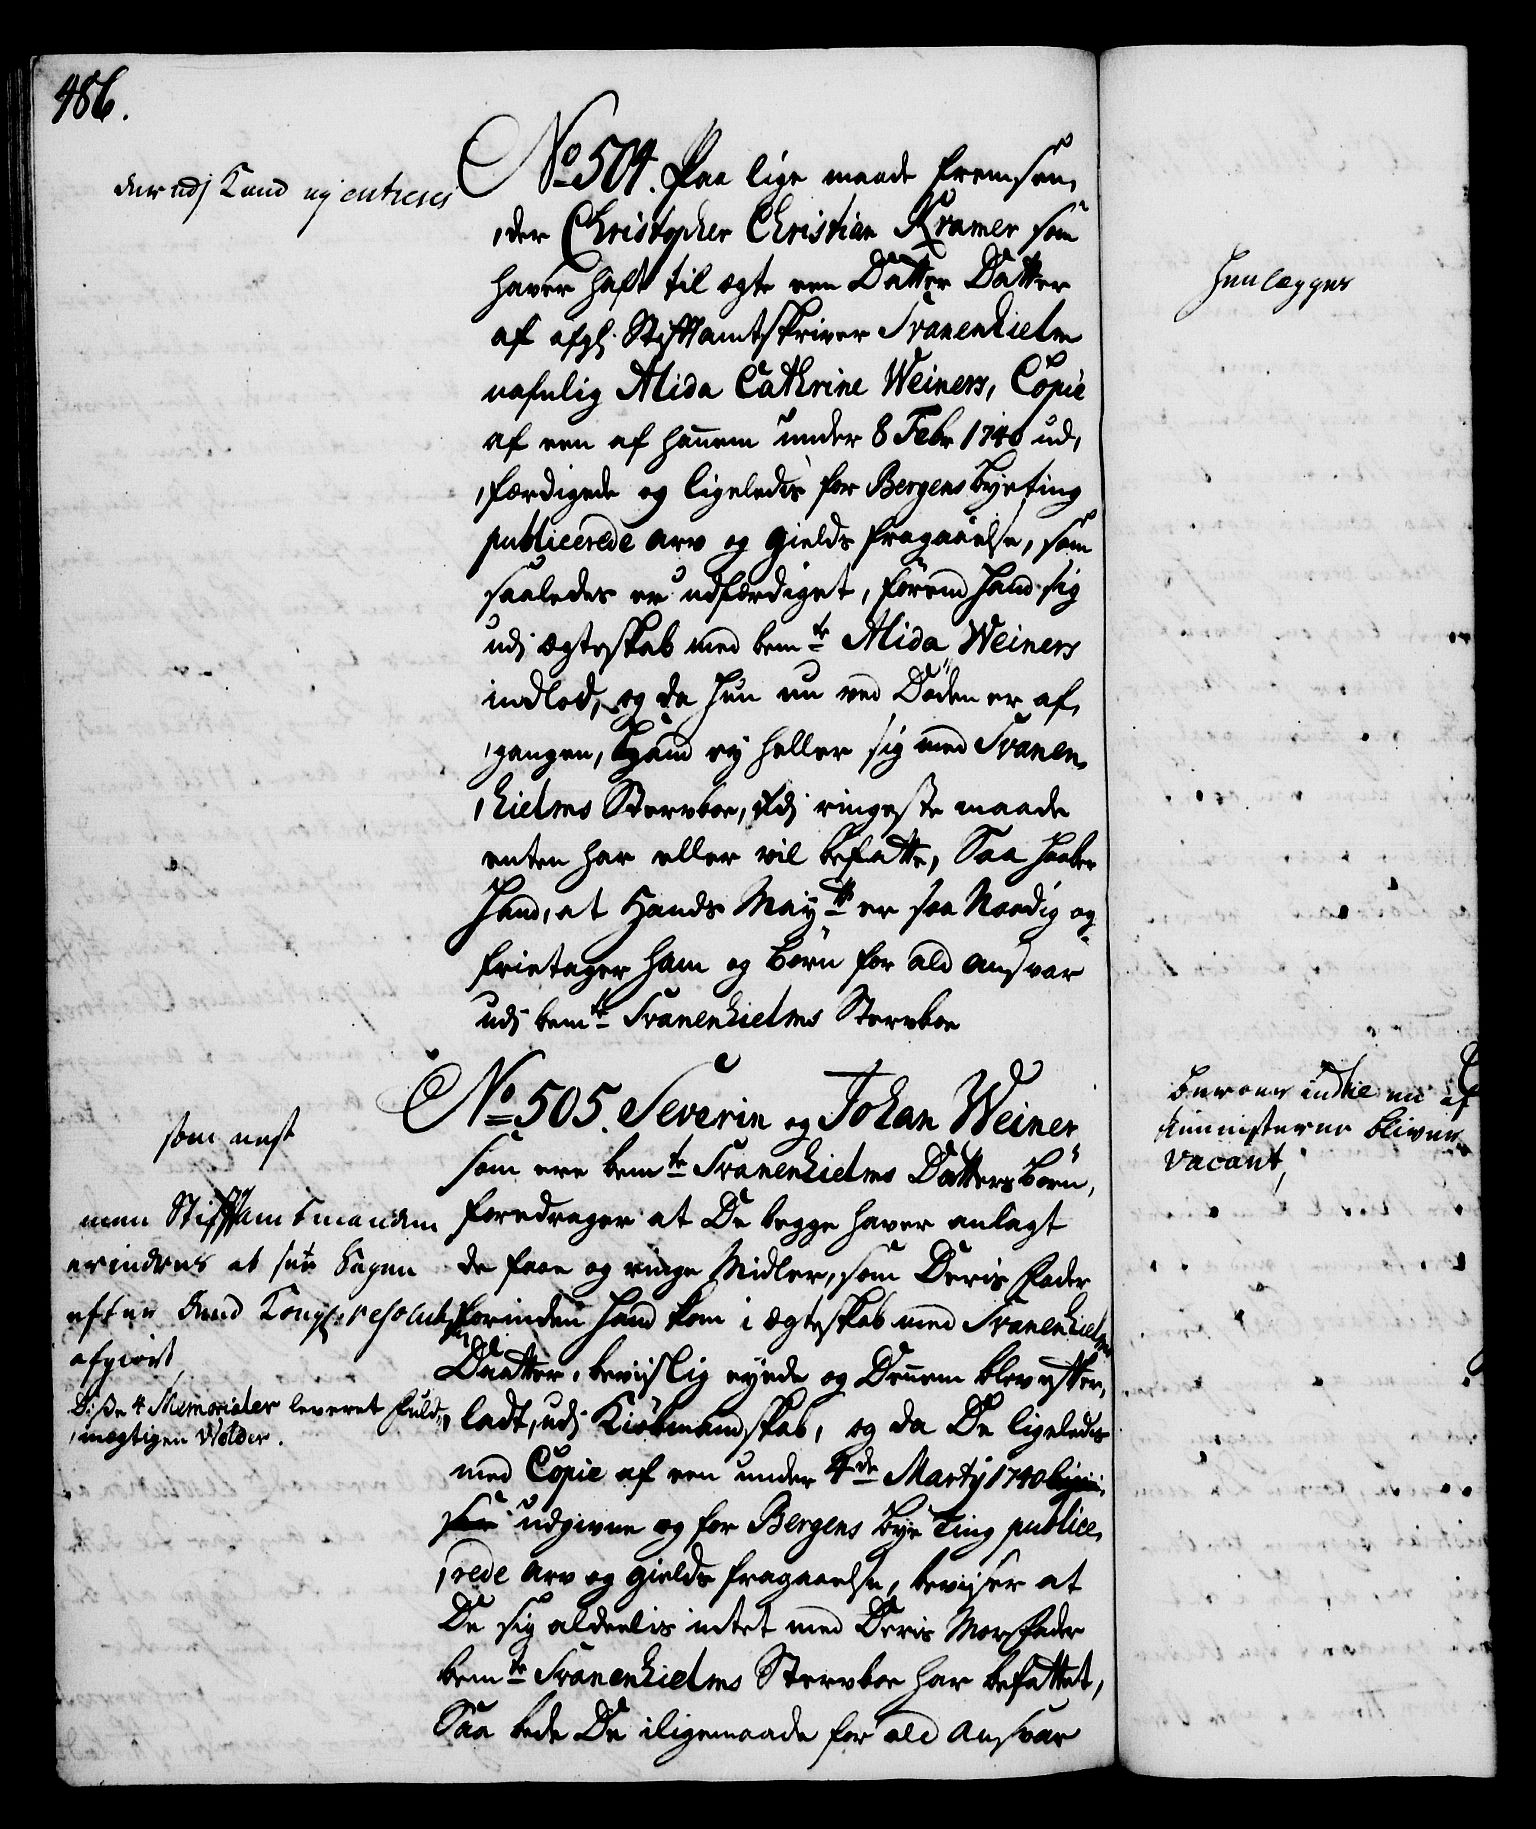 486.
der udj Kand ej entreres
No 504. Paa lige maade fremsen,
,der Christopher Christian Kramer som
haver hafft til ægte een Datter Datter
af afg: Stifftamtskriver Svanenhielm
nafnlig Alida Cathrine Weiners, Copie
af een af hannem under 8 Febr 1740 ud,
,færdigede og ligeledes for Bergens Byeting
publicerede arv og gields fragaaelse, som
saaledes er udfærdiget, førend hand sig
udj ægteskab med bemte Alida Weiners
indlod, og da hun nu ved Døden er af,
,gangen, Hand ej heller sig med Svanen,
,hielms Stervboe, udj ringeste maade
enten har eller vil befatte, Saa haaber
Hand, at Hands Mayts er saa Naadig og
frietager ham og Børn for ald ansvar
udj bemte Svanenhielms Stervboe
No 505. Severin og Johan Weiner
som ere bemte Svanenhielms Datters Børn,
foredrager at De begge haver anlagt
de faae og ringe Midler, som Deris Fader
forinden hand kom i ægteskab med Svanenhielms
Daatter, bevislig eyede og Dennem blev efter,
,ladt, udj Kiøbmandskab, og da De ligeledes
med Copie af een under 4de Martij 1740
udgivne og for Bergens Bye Ting publice,
,rede arv og gields fragaaelse, beviser at
De sig aldeelis intet med Deris Morfader
bemte Svanenhielms Stervboe har befattet,
Saa bede De iligemaade for ald ansvar
som nest
men Stifftamtmanden
erindres at see Sagen
efter Kongl: resolut
afgiort
Disse 4 Memorialer leveret Fuld,
,mægtigen Wølder.
henlægges
vacant,